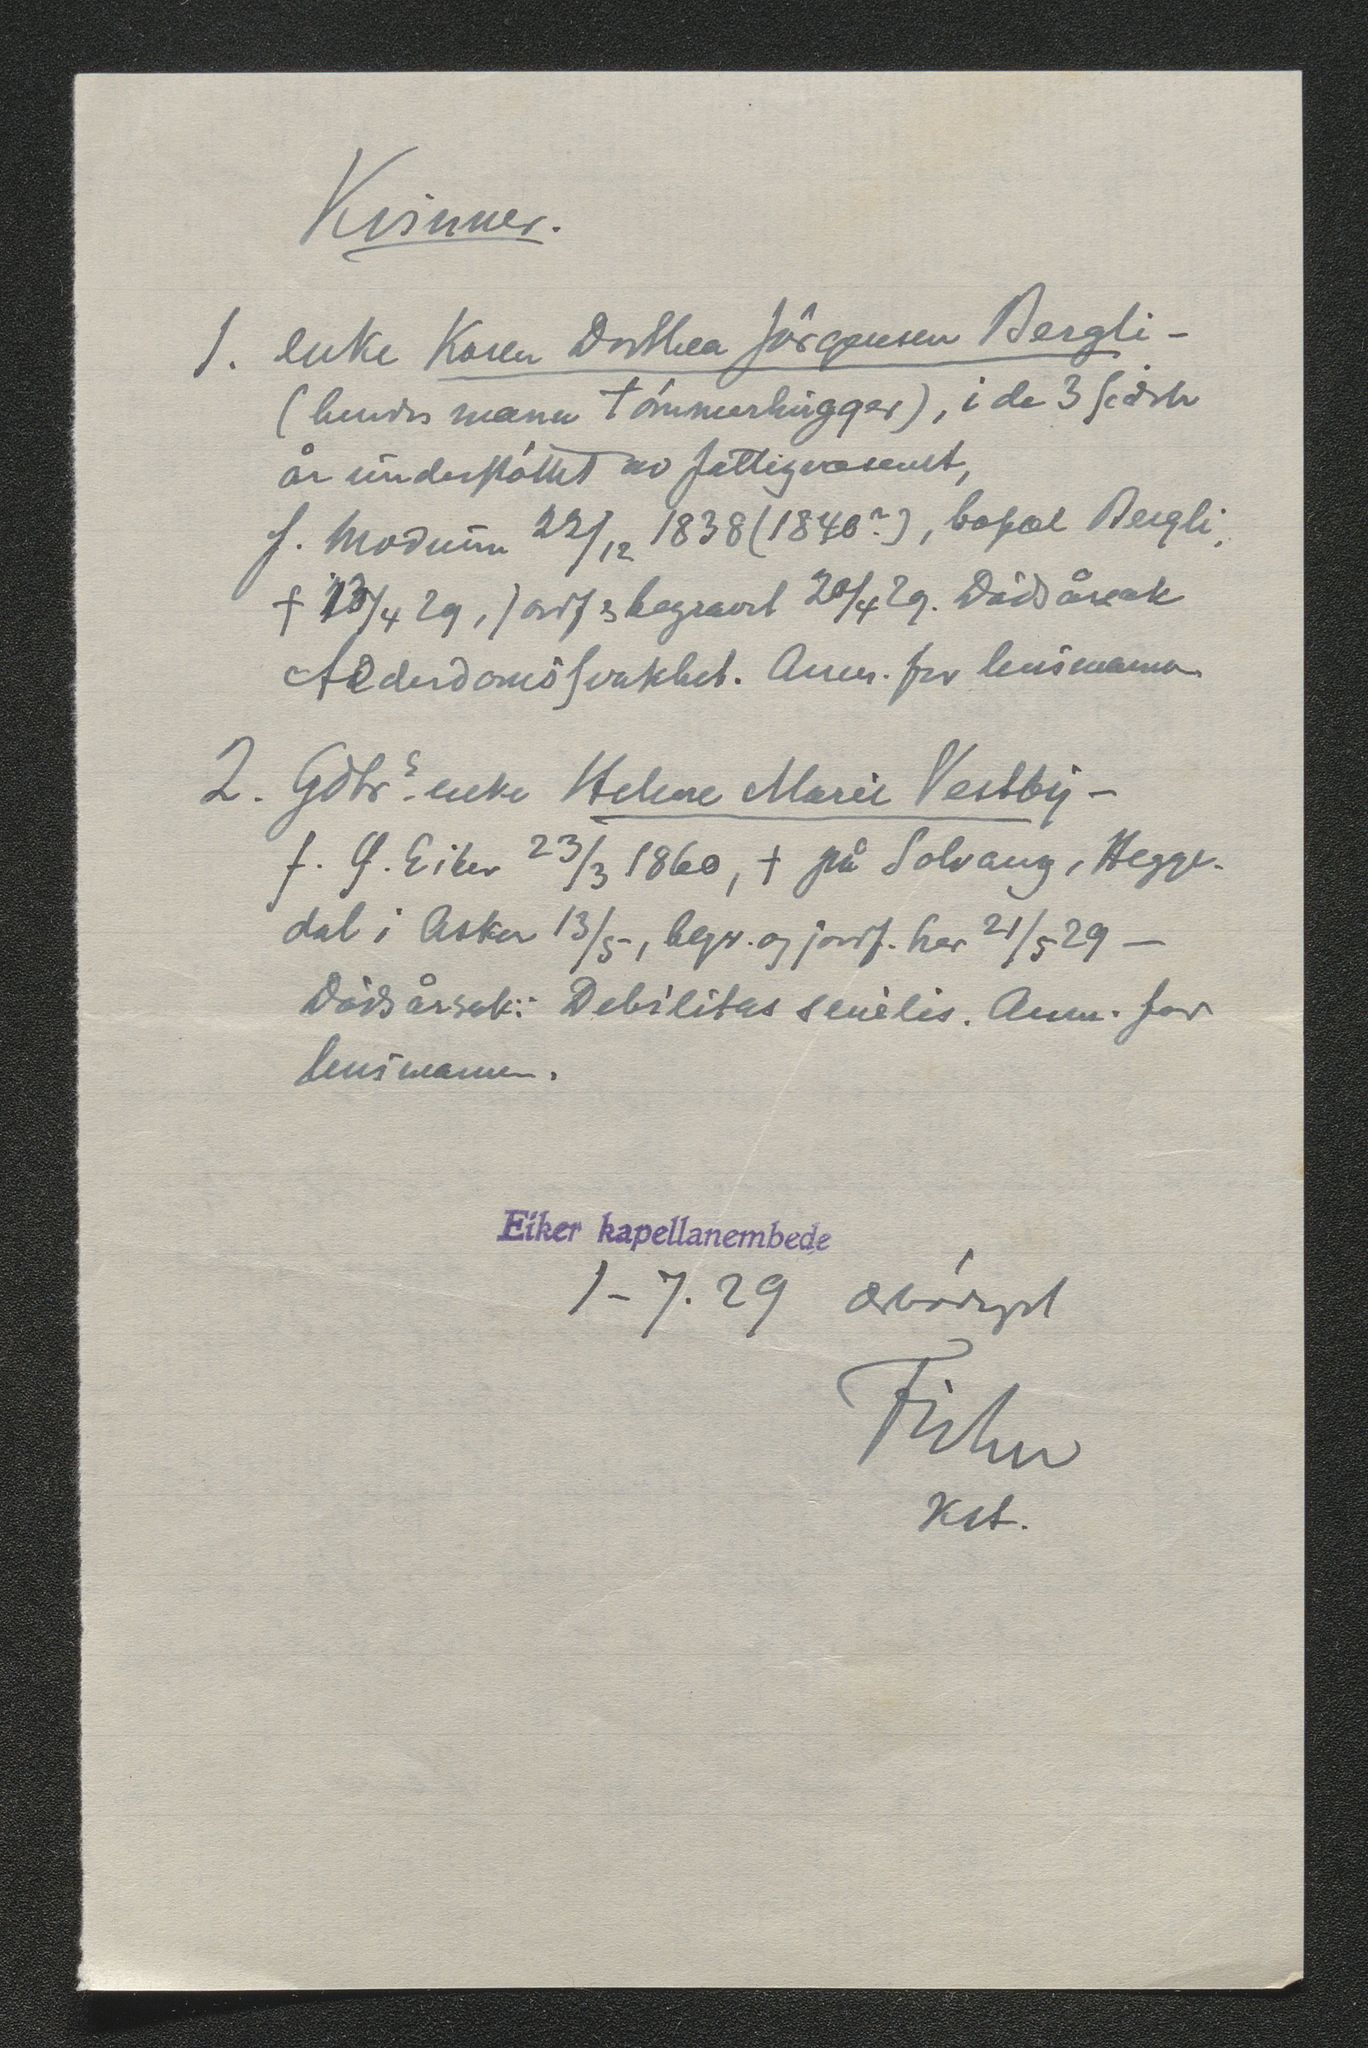 Kvinner.
1. enke Karen Dorthea Jörgensen Bergli -
(hendes mann tömmerhugger), i de 3 siste
år understöttet av fattigvæsenet,
f. Modum 22/12 1838 (1840?), bopæl Bergli,
† 13/4 29, jordf. & begravet 20/4 29. Dödsårsak
Alderdomssvakhet. Anm. for lensmann
2. Gdbrs. enke Helene Marie Vestby -
f. Ø. Eiker 23/3 1860, † på Solvang, Hegge-
dal i Asker 13/5-, begr. og jordf. her 21/5 29 -
Dödsårsak: Debilitas senilis. Anm. for
lensmannen.
Eiker kapellanembede
1-7.29 ærbödigst
Kst.